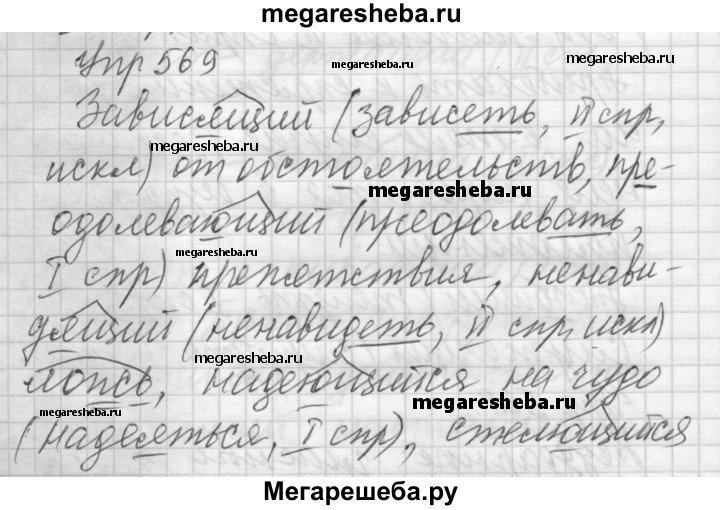 megaresheba.ru
Упр 569
megaresheba.ru
megaresheba.ru
Зависящий (зависеть, II спр,
megaresheba.ru
искл) от обстоятельств, пре-
megaresheba.ru
одолевающий (преодолевать,
megaresheba.ru
I спр) препятствия, ненави-
дящий (ненавидеть, II спр, искл)
megaresheba.ru
лось, надеющийся на чудо
megaresheba.ru
megaresheba.ru
(надеяться, I спр), стелющийся
Мегарешеба.ру